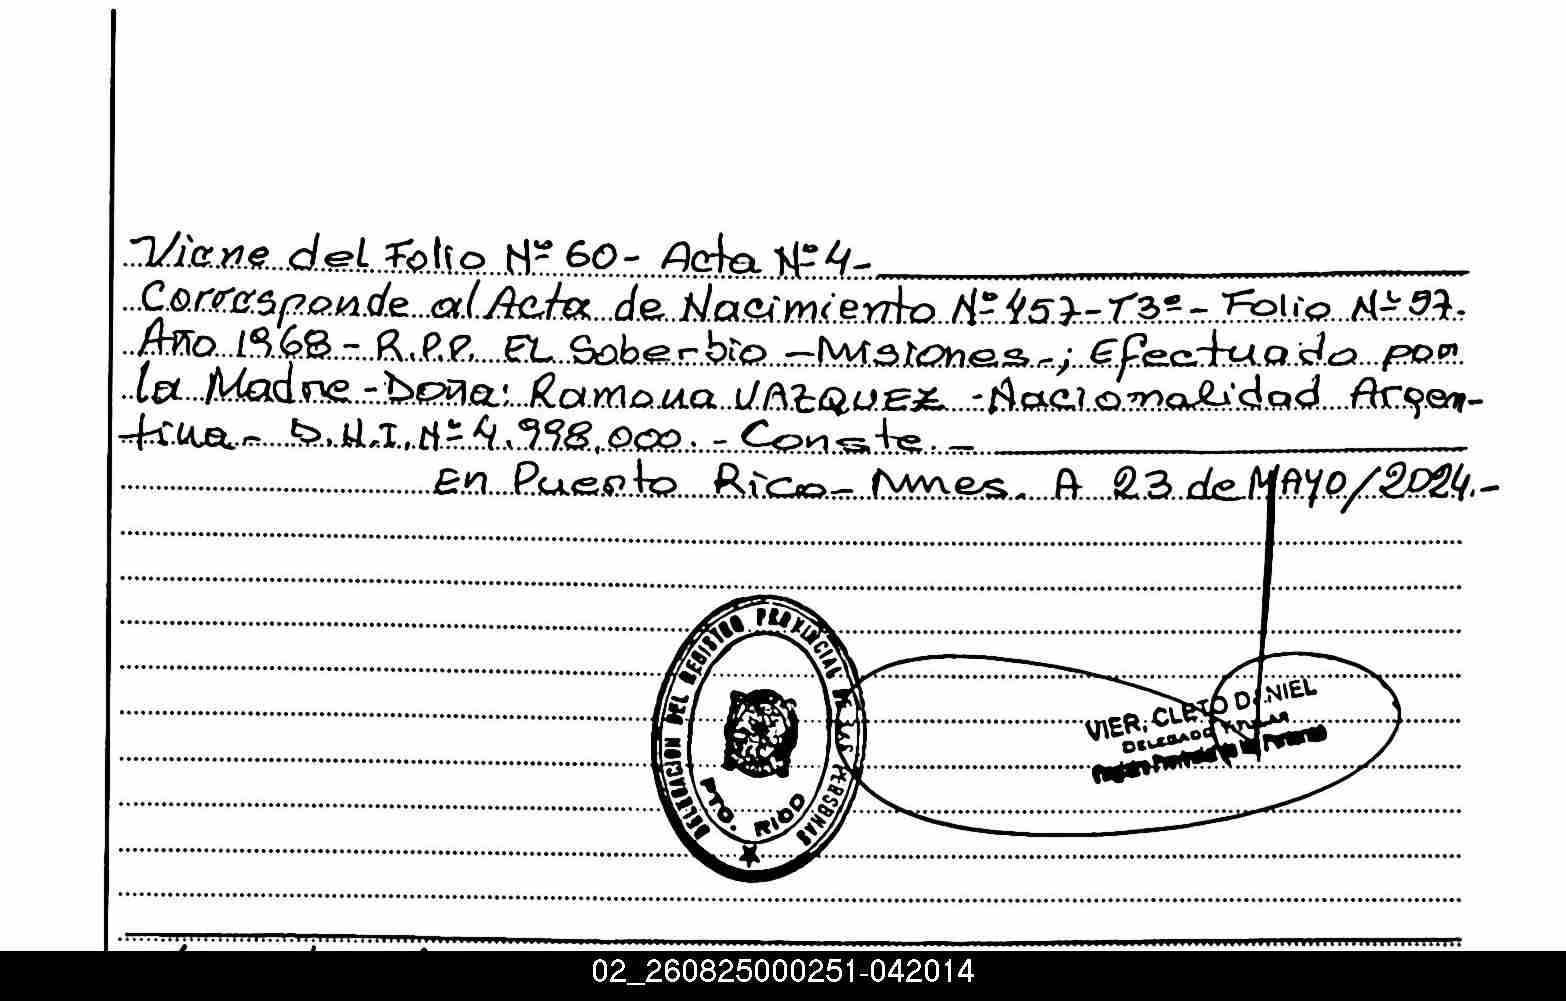 Viene del Folio Nº 60- Acta Nº 4-
Corresponde al Acta de Nacimiento Nº 457-T3º- Folio Nº 97.
Año 1968- R.P.P. EL Soberbio -Misiones-; Efectuado por
la Madre-Doña: Ramona VAZQUEZ -Nacionalidad Argen-
tina- D.N.I. Nº 4.998.000.- Conste.-
En Puerto Rico- Mnes. A 23 de MAYO/2024.-
DELEGACION DEL REGISTRO PROVINCIAL DE LAS PERSONAS
PTO. RICO
VIER, CLETO DANIEL
DELEGADO TITULAR
Registro Provincial de las Personas
02_260825000251-042014